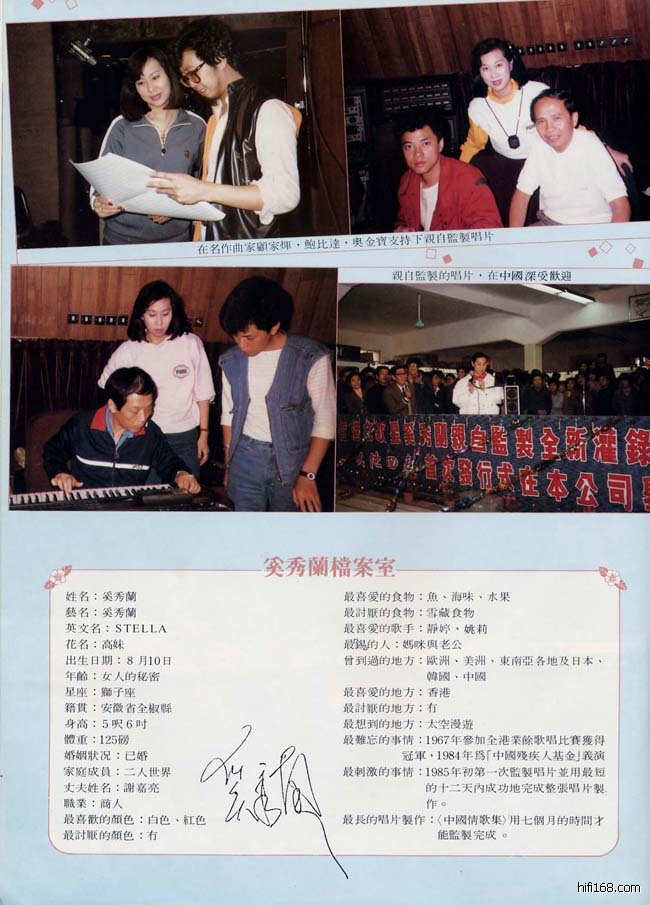 在名作曲家顧家煇，鮑比達，奧金寶支持下親自監製唱片
親自監製的唱片，在中國深受歡迎
歌星奚秀蘭親自監製全新灌錄
首次發行式在本公司
奚秀蘭檔案室
姓名：奚秀蘭
藝名：奚秀蘭
英文名：STELLA
花名：高妹
出生日期：8月10日
年齡：女人的秘密
星座：獅子座
籍貫：安徽省全椒縣
身高：5呎6吋
體重：125磅
婚姻狀況：已婚
家庭成員：二人世界
丈夫姓名：謝嘉亮
職業：商人
最喜歡的顏色：白色、紅色
最討厭的顏色：冇
最喜愛的食物：魚、海味、水果
最討厭的食物：雪藏食物
最喜愛的歌手：靜婷、姚莉
最錫的人：媽咪與老公
曾到過的地方：歐洲、美洲、東南亞各地及日本、
韓國、中國
最喜愛的地方：香港
最討厭的地方：冇
最想到的地方：太空漫遊
最難忘的事情：1967年參加全港業餘歌唱比賽獲得
冠軍，1984年爲「中國殘疾人基金」義演
最刺激的事情：1985年初第一次監製唱片並用最短
的十二天內成功地完成整張唱片製
作。
最長的唱片製作：〈中國情歌集〉用七個月的時間才
能監製完成。
奚秀蘭
hifi168.com